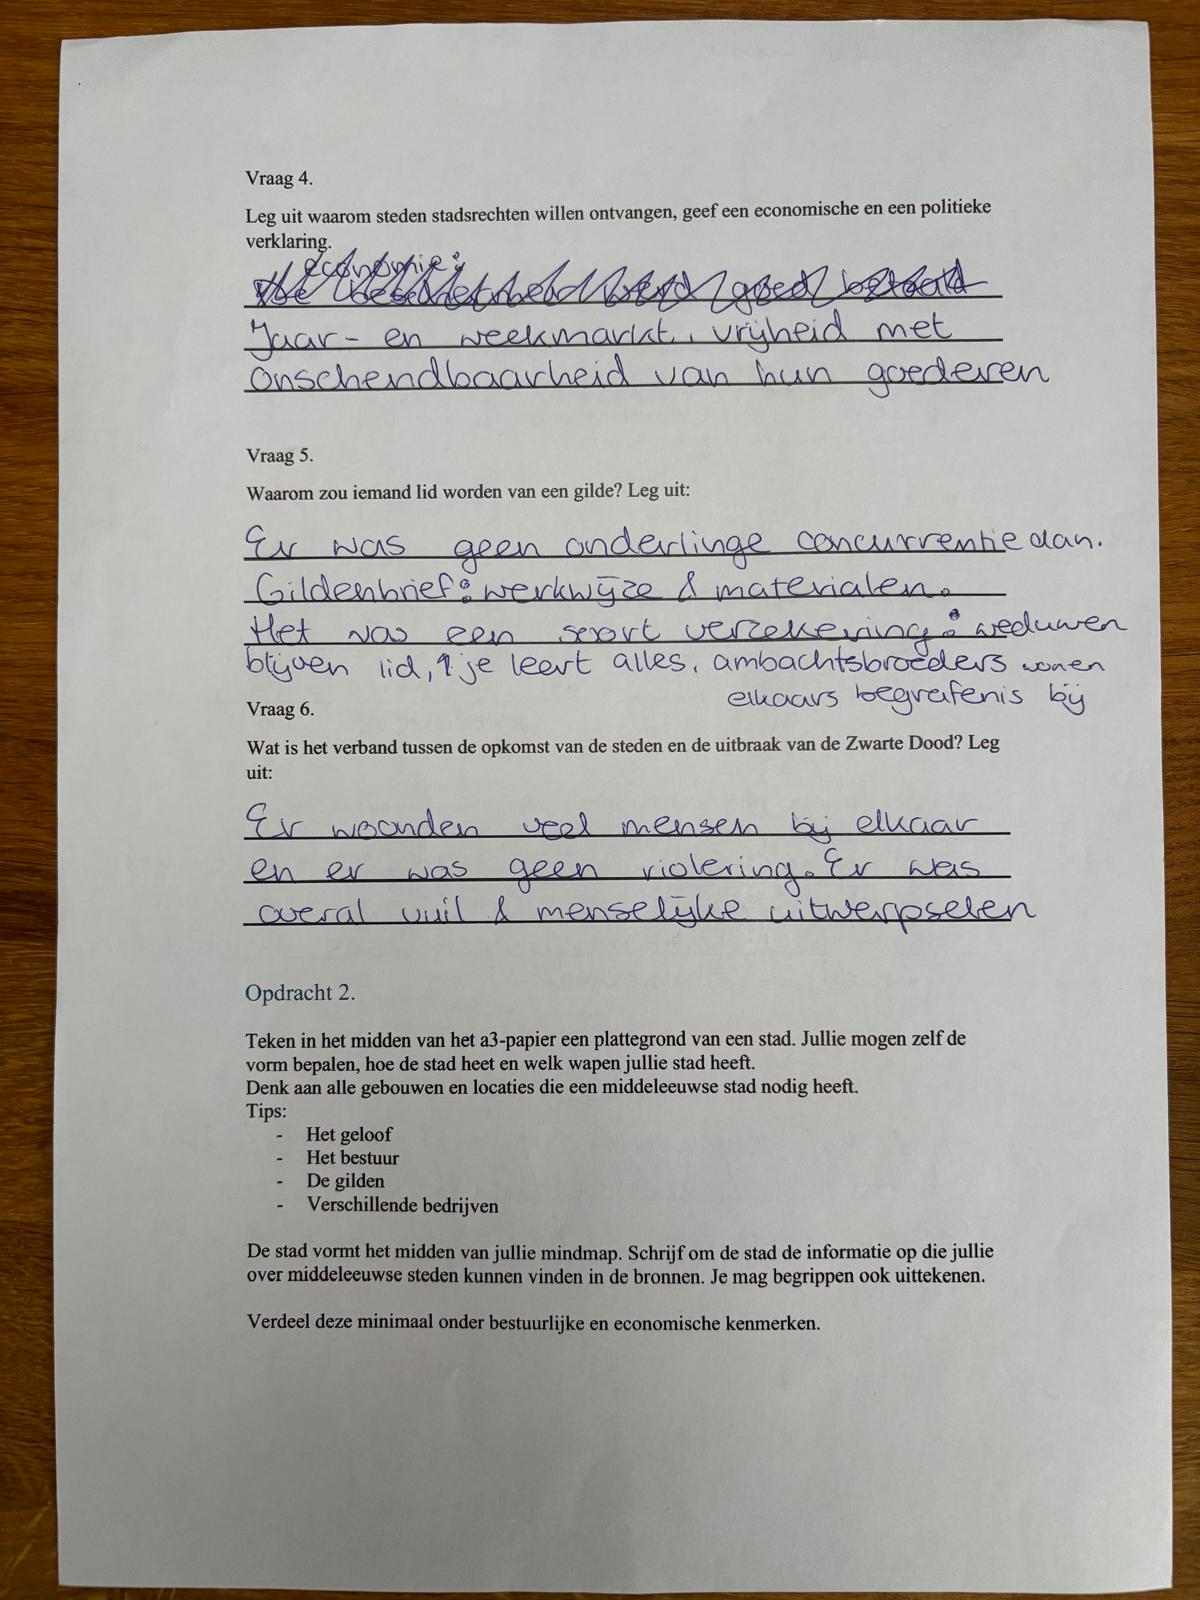 Vraag 4.
Leg uit waarom steden stadsrechten willen ontvangen, geef een economische en een politieke
verklaring.
economie:
Jaar- en weekmarkt, vrijheid met
onschendbaarheid van hun goederen
Vraag 5.
Waarom zou iemand lid worden van een gilde? Leg uit:
Er was geen onderlinge concurrentie dan.
Gildenbrief: werkwijze & materialen.
Het was een soort verzekering: weduwen
blijven lid, je leert alles, ambachtsbroeders wonen
elkaars begrafenis bij
Vraag 6.
Wat is het verband tussen de opkomst van de steden en de uitbraak van de Zwarte Dood? Leg
uit:
Er woonden veel mensen bij elkaar
en er was geen riolering. Er was
overal vuil & menselijke uitwerpselen
Opdracht 2.
Teken in het midden van het a3-papier een plattegrond van een stad. Jullie mogen zelf de
vorm bepalen, hoe de stad heet en welk wapen jullie stad heeft.
Denk aan alle gebouwen en locaties die een middeleeuwse stad nodig heeft.
Tips:
- Het geloof
- Het bestuur
- De gilden
- Verschillende bedrijven
De stad vormt het midden van jullie mindmap. Schrijf om de stad de informatie op die jullie
over middeleeuwse steden kunnen vinden in de bronnen. Je mag begrippen ook uittekenen.
Verdeel deze minimaal onder bestuurlijke en economische kenmerken.